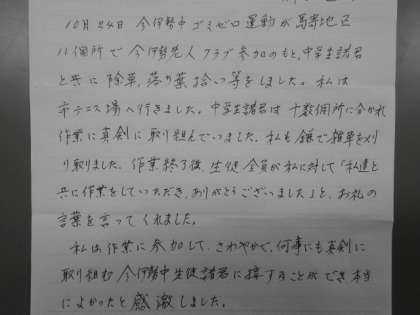 10月24日 今伊勢中ゴミゼロ運動が馬寄地区
八個所で今伊勢老人クラブ参加のもと、中学生諸君
と共に除草、落り葉拾い等をしました。私は
市テニス場へ行きました。中学生諸君は十数個所に分かれ
作業に真剣に取り組んでいました。私も鎌で雑草を刈
り取りました。作業終了後、生徒全員が私に対して「私達と
共に作業をしていただき、ありがとうございました」と、お礼の
言葉を言ってくれました。
私は作業に参加して、さわやかで、何事にも真剣に
取り組む今伊勢中生徒諸君に接することができ本当
によかったと感激しました。